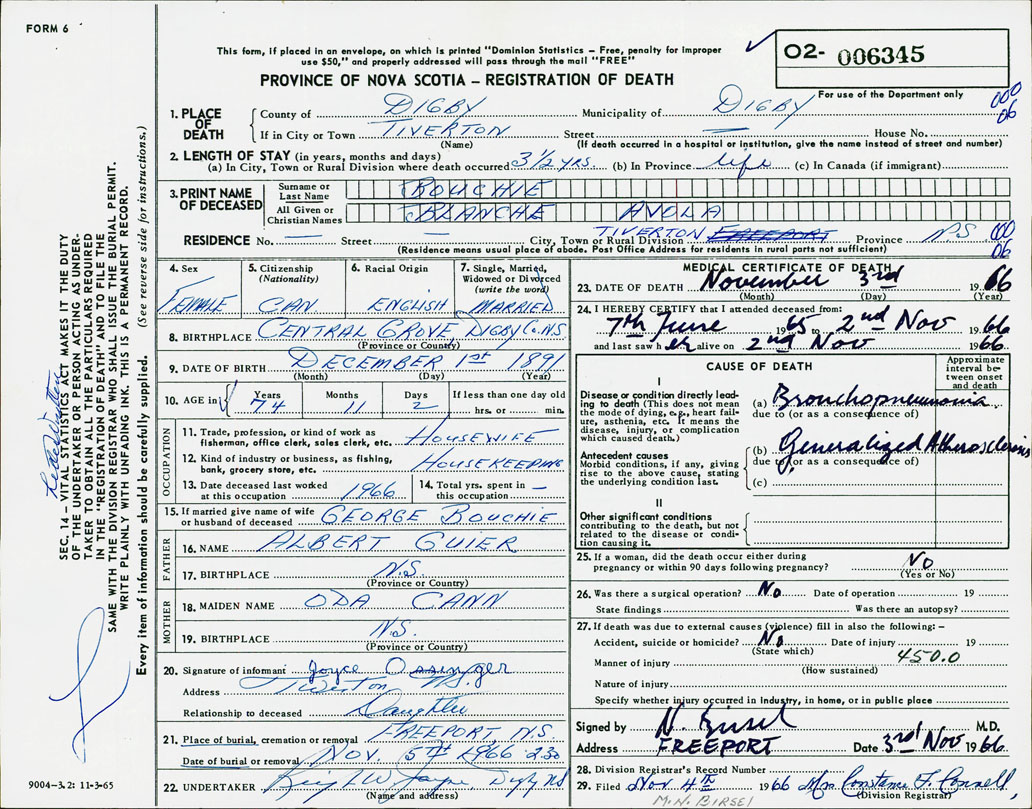 FORM 6
This form, if placed in an envelope, on which is printed "Dominion Statistics – Free, penalty for improper
use $50," and properly addressed will pass through the mail "FREE"
PROVINCE OF NOVA SCOTIA – REGISTRATION OF DEATH
O2- 006345
For use of the Department only
000
06
1. PLACE OF DEATH
County of DIGBY Municipality of DIGBY
If in City or Town TIVERTON Street — House No.
(Name) (If death occurred in a hospital or institution, give the name instead of street and number)
2. LENGTH OF STAY (in years, months and days)
(a) In City, Town or Rural Division where death occurred 3 1/2 YRS. (b) In Province life (c) In Canada (if immigrant)
3. PRINT NAME OF DECEASED
Surname or Last Name BOUCHIE
All Given or Christian Names BLANCHE AVOLA
RESIDENCE No. — Street — City, Town or Rural Division TIVERTON FREEPORT Province N.S
000
06
(Residence means usual place of abode. Post Office Address for residents in rural parts not sufficient)
4. Sex FEMALE
5. Citizenship (Nationality) CAN.
6. Racial Origin ENGLISH
7. Single, Married, Widowed or Divorced (write the word) MARRIED
8. BIRTHPLACE CENTRAL GROVE, DIGBY Co. NS
(Province or Country)
9. DATE OF BIRTH DECEMBER 1st 1891
(Month) (Day) (Year)
10. AGE in Years 74 Months 11 Days 2 If less than one day old hrs. or min.
OCCUPATION
11. Trade, profession, or kind of work as fisherman, office clerk, sales clerk, etc. HOUSEWIFE
12. Kind of industry or business, as fishing, bank, grocery store, etc. HOUSEKEEPING
13. Date deceased last worked at this occupation 1966
14. Total yrs. spent in this occupation –
15. If married give name of wife or husband of deceased GEORGE BOUCHIE
FATHER
16. NAME ALBERT GUIER
17. BIRTHPLACE N.S.
(Province or Country)
MOTHER
18. MAIDEN NAME ODA CANN
19. BIRTHPLACE N.S.
(Province or Country)
20. Signature of informant Joyce Ossinger
Address Tiverton N.S.
Relationship to deceased Daughter
21. Place of burial, cremation or removal FREEPORT, N.S
Date of burial or removal NOV. 5TH 1966 2.30
22. UNDERTAKER
(Name and address)
MEDICAL CERTIFICATE OF DEATH
23. DATE OF DEATH November 3rd 1966
(Month) (Day) (Year)
24. I HEREBY CERTIFY that I attended deceased from:
7th June 1965 to 2nd Nov 1966
and last saw her alive on 2nd Nov 1966
CAUSE OF DEATH
Approximate interval between onset and death
I
Disease or condition directly leading to death (This does not mean the mode of dying, e.g., heart failure, asthenia, etc. It means the disease, injury, or complication which caused death.)
(a) Bronchopneumonia
due to (or as a consequence of)
Antecedent causes
Morbid conditions, if any, giving rise to the above cause, stating the underlying condition last.
(b) Generalized Atherosclerosis
due to (or as a consequence of)
(c)
II
Other significant conditions contributing to the death, but not related to the disease or condition causing it.
25. If a woman, did the death occur either during pregnancy or within 90 days following pregnancy? No
(Yes or No)
26. Was there a surgical operation? No Date of operation 19
State findings Was there an autopsy?
27. If death was due to external causes (violence) fill in also the following: –
Accident, suicide or homicide? No Date of injury 19
(State which)
450.0
Manner of injury
(How sustained)
Nature of injury
Specify whether injury occurred in Industry, in home, or in public place
Signed by N. Birsel M.D.
Address FREEPORT Date 3rd Nov 1966
28. Division Registrar's Record Number
29. Filed Nov 4th 1966 Mrs. Constance F. Connell
(Division Registrar)
M.N. BIRSEL
SEC. 14 – VITAL STATISTICS ACT MAKES IT THE DUTY
OF THE UNDERTAKER OR PERSON ACTING AS UNDER-
TAKER TO OBTAIN ALL THE PARTICULARS REQUIRED
IN THE "REGISTRATION OF DEATH" AND TO FILE THE
SAME WITH THE DIVISION REGISTRAR WHO SHALL ISSUE THE BURIAL PERMIT.
WRITE PLAINLY WITH UNFADING INK. THIS IS A PERMANENT RECORD.
Every item of information should be carefully supplied. (See reverse side for instructions.)
9004-3.2: 11-3-65